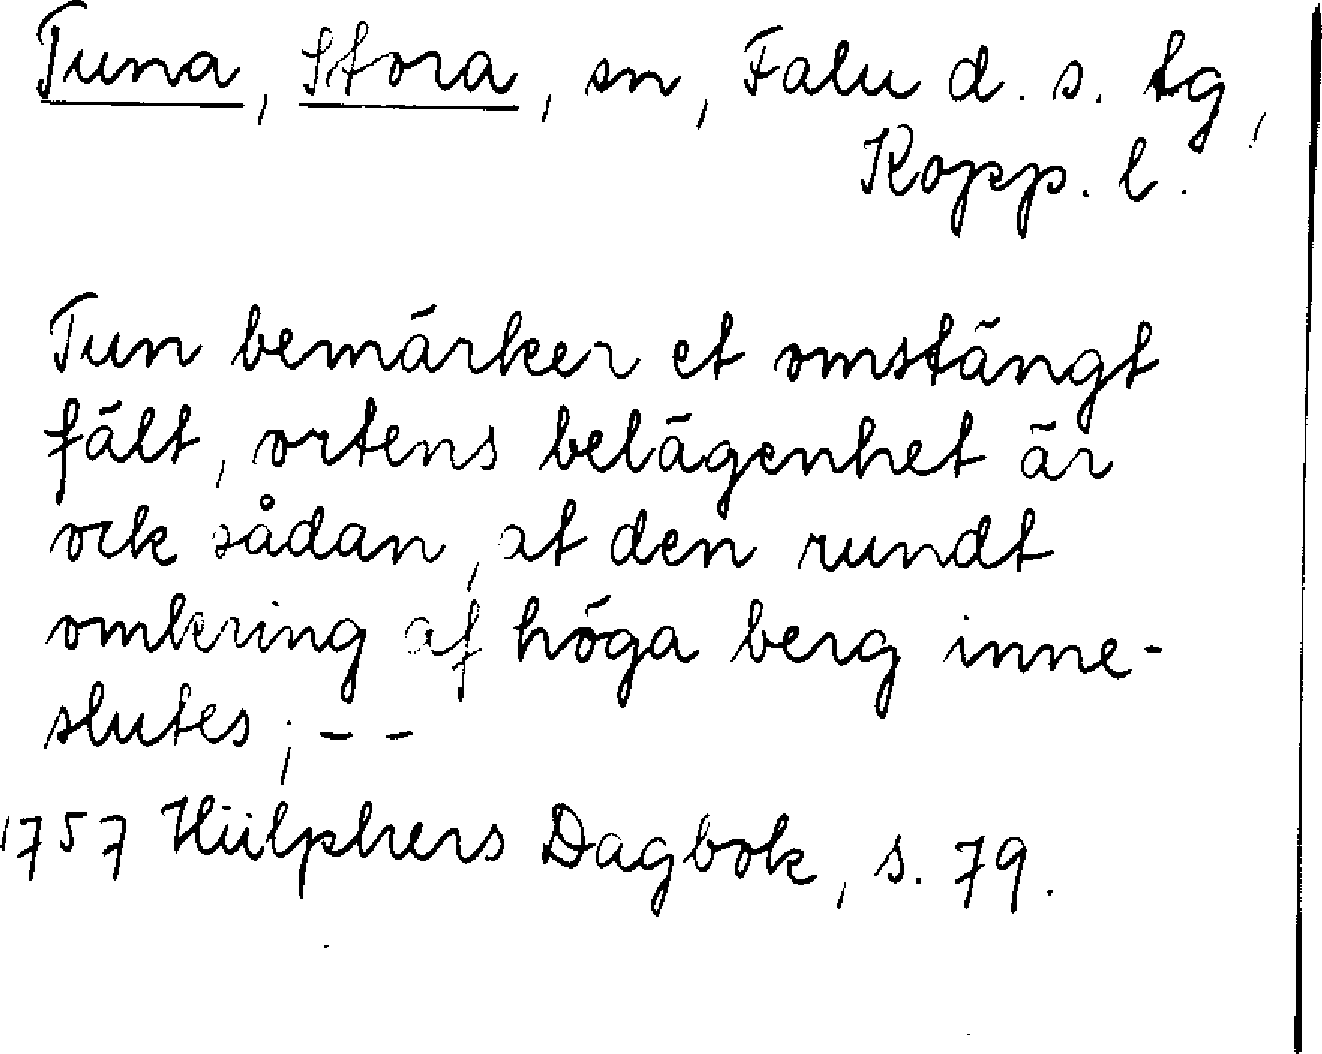 Tuna, Stora, sn, Falu d. s. tg,
Kopp. l.
Tun bemärker et omstängt
fält, ortens belägenhet är
ock sådan, at den rundt
omkring af höga berg inne-
slutes; - -
1757 Hülphers Dagbok, s. 79.